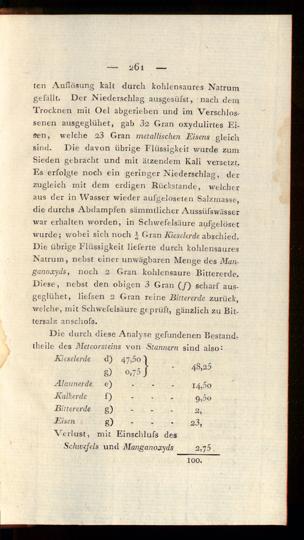 — 261 —
ten Auflösung kalt durch kohlensaures Natrum
gefällt. Der Niederschlag ausgesüfst, nach dem
Trocknen mit Oel abgerieben und im Verschlos-
senen ausgeglühet, gab 32 Gran oxydulirtes Ei-
sen, welche 23 Gran metallischen Eisens gleich
sind. Die davon übrige Flüssigkeit wurde zum
Sieden gebracht und mit ätzendem Kali versetzt.
Es erfolgte noch ein geringer Niederschlag, der
zugleich mit dem erdigen Rückstande, welcher
aus der in Wasser wieder aufgelöseten Salzmasse,
die durch Abdampfen sämmtlicher Aussüfswässer
war erhalten worden, in Schwefelsäure aufgelöset
wurde; wobei sich noch ¼ Gran Kieselerde abschied.
Die übrige Flüssigkeit lieferte durch kohlensaures
Natrum, nebst einer unwägbaren Menge des Man-
ganoxyds, noch 2 Gran kohlensaure Bittererde.
Diese, nebst den obigen 3 Gran (f) scharf aus-
geglühet, liefsen 2 Gran reine Bittererde zurück,
welche, mit Schwefelsäure geprüft, gänzlich zu Bit-
tersalz anschofs.
Die durch diese Analyse gefundenen Bestand-
theile des Meteorsteins von Stannern sind also:
Kieselerde d) 47,50
g) 0,75 } - 48,25
Alaunerde e) - - - 14,50
Kalkerde f) - - - 9,50
Bittererde g) - - - 2,
Eisen g) - - - 23,
Verlust, mit Einschlufs des
Schwefels und Manganoxyds 2,75
100.